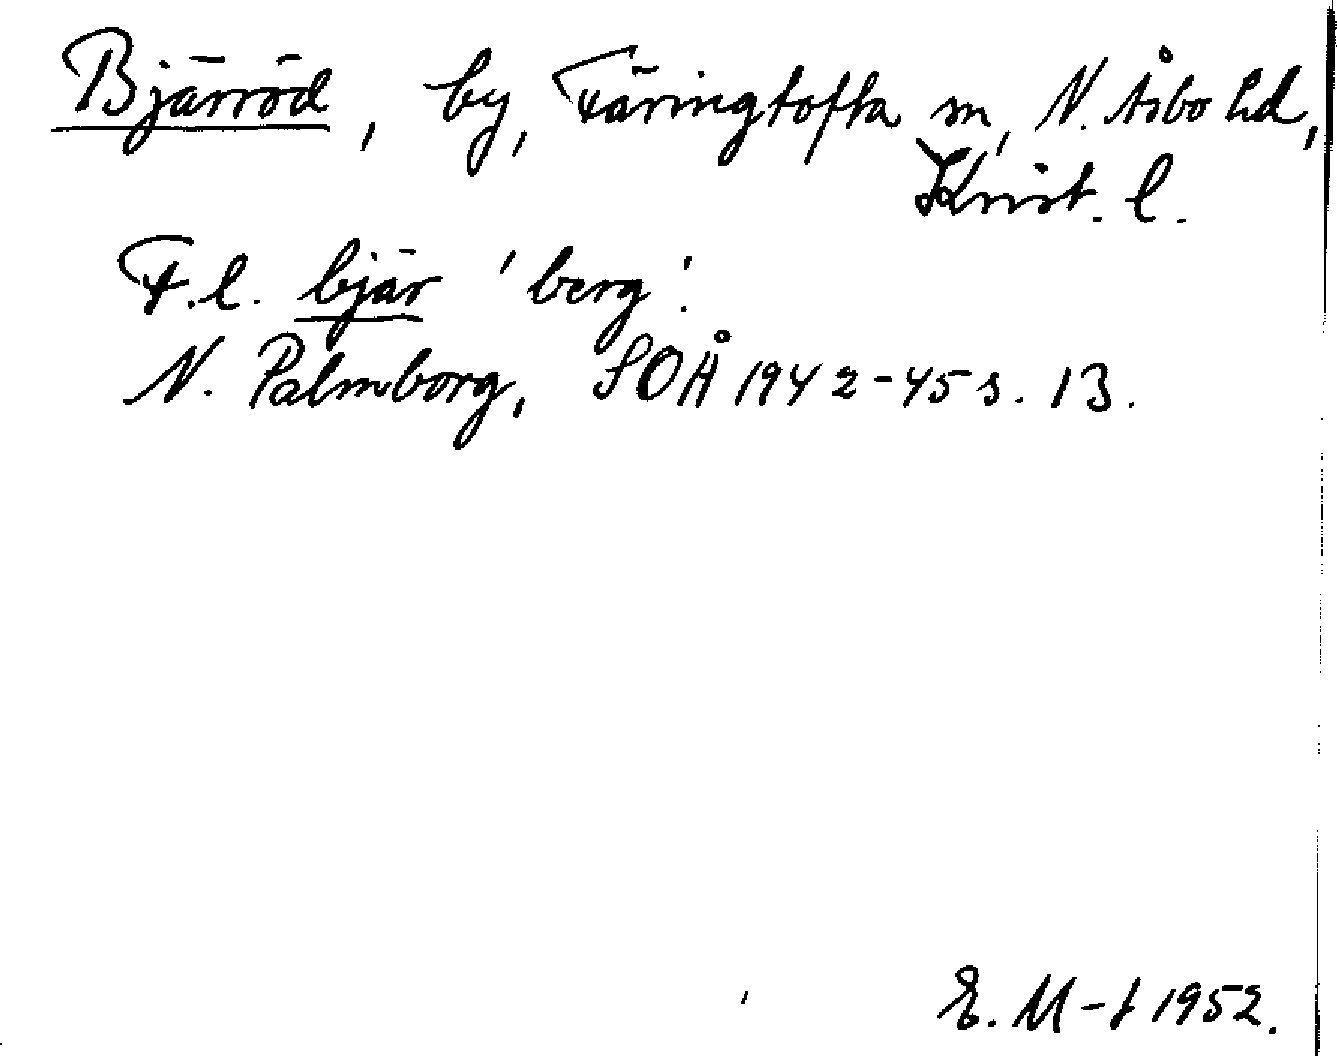 Bjärröd, by, Färingtofta sn, N. Åsbo hd,
Krist. l.
F.l. bjär 'berg'.
N. Palmborg, SOÅ 1942-45 s. 13.
E. M-t 1952.